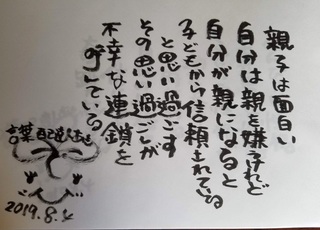 親子は面白い
自分は親を嫌うけれど
自分が親になると
子どもから信頼されている
と思い過ごす
その思い過ごしが
不幸な連鎖を
呼んでいる
2019.8.4